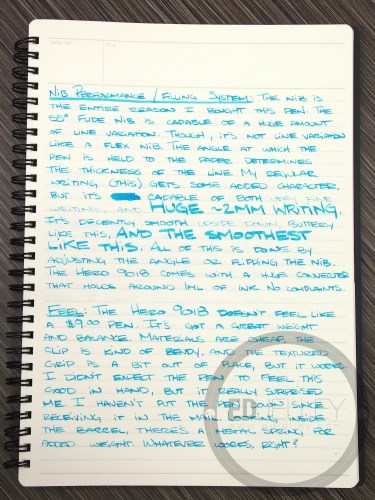 Nib Performance / Filling System: The nib is
the entire reason I bought this pen. The
55° fude nib is capable of a huge amount
of line variation. Though, it's not line variation
like a flex nib. The angle at which the
pen is held to the paper determines
the thickness of the line. My regular
writing, (this) gets some added character,
but it's capable of both very fine
writing, and HUGE ~2mm writing.
It's decently smooth upside down, buttery
like this, AND THE SMOOTHEST
LIKE THIS. All of this is done by
adjusting the angle or flipping the nib.
The Hero 9018 comes with a huge converter
that holds around 1ml of ink. No complaints.
Feel: The Hero 9018 doesn't feel like
a $9.00 pen. It's got a great weight
and balance. Materials are cheap, the
clip is kind of bendy, and the textured
grip is a bit out of place, but it works.
I didn't expect the pen to feel this
good in hand, but it really surprised
me. I haven't put the pen down since
receiving it in the mail. Looking inside
the barrel, there's a metal spring for
added weight. Whatever works, right?